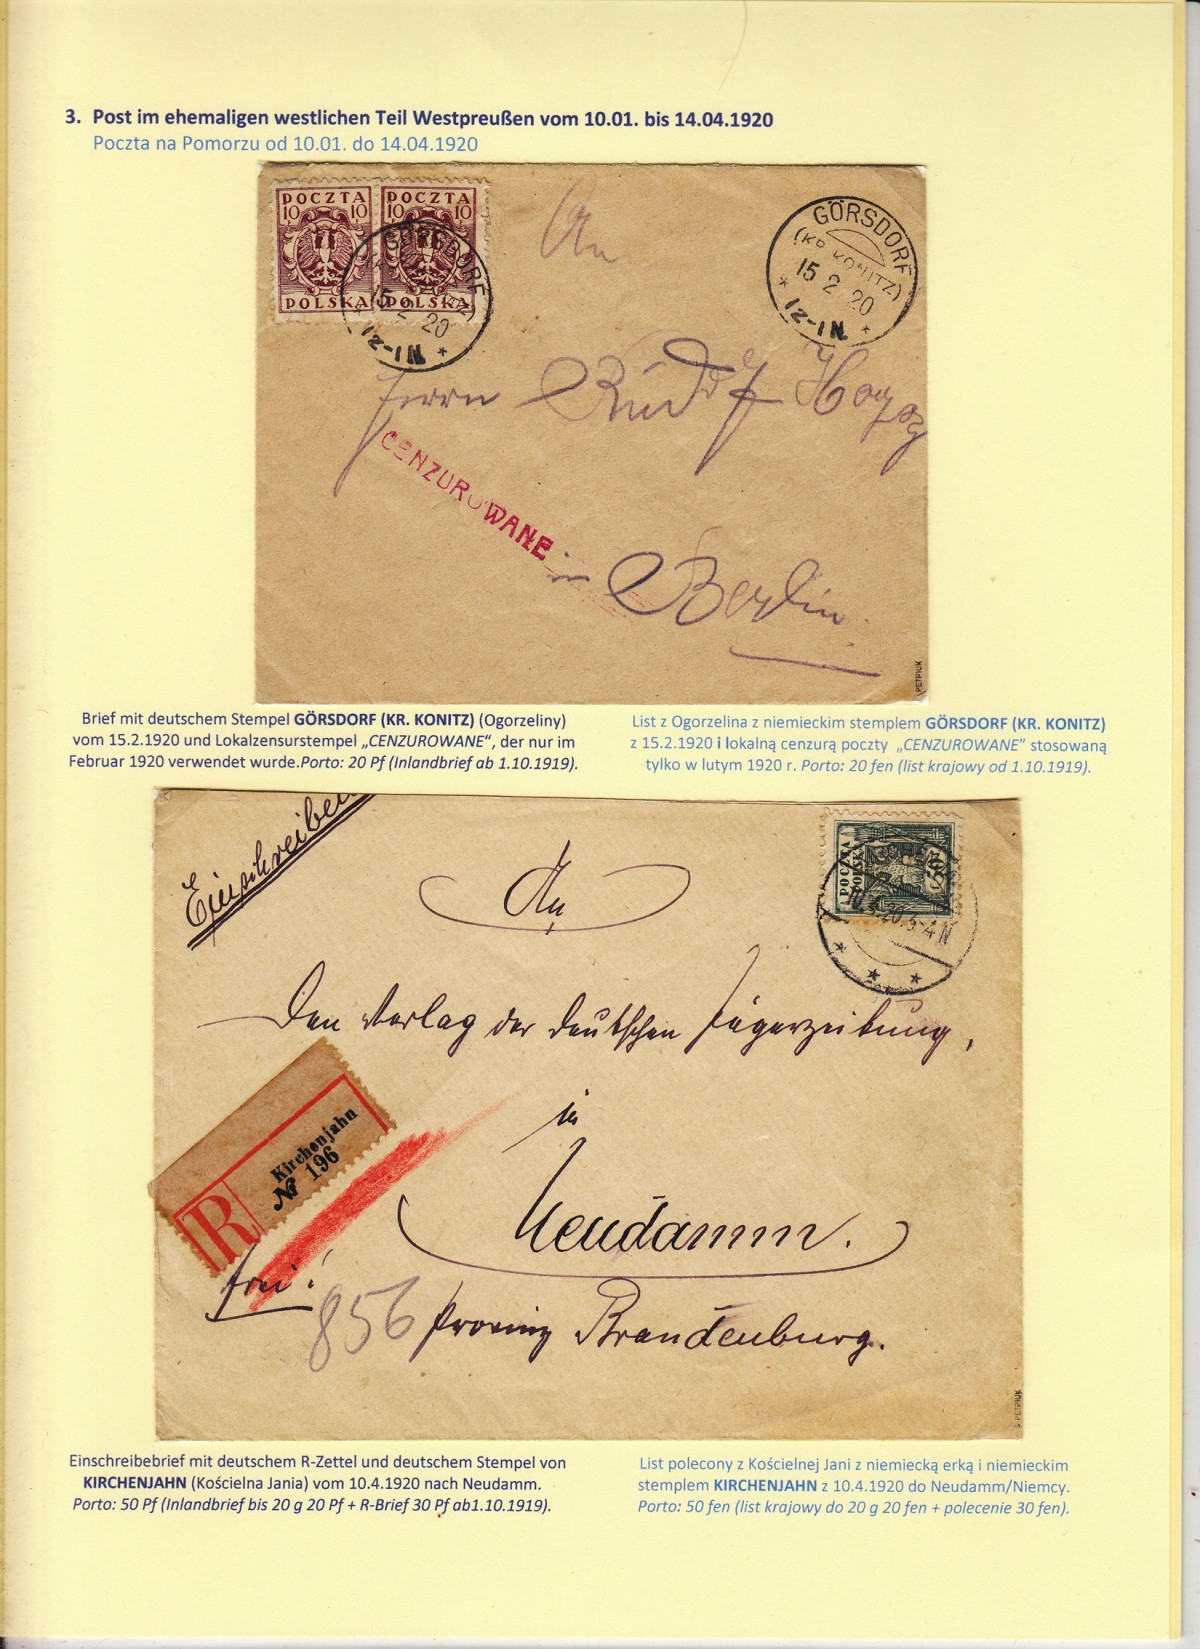 3. Post im ehemaligen westlichen Teil Westpreußen vom 10.01. bis 14.04.1920
Poczta na Pomorzu od 10.01. do 14.04.1920
POCZTA POCZTA
10 10 10 10
POLSKA POLSKA
GÖRSDORF
(KR. KONITZ)
15 2 20
12-1N
An
GÖRSDORF
(KR. KONITZ)
15 2 20
12-1N
Herrn Rudolf
CENZUROWANE
in Berlin
PETRIUK
Brief mit deutschem Stempel GÖRSDORF (KR. KONITZ) (Ogorzeliny)
vom 15.2.1920 und Lokalzensurstempel „CENZUROWANE“, der nur im
Februar 1920 verwendet wurde.Porto: 20 Pf (Inlandbrief ab 1.10.1919).
List z Ogorzelina z niemieckim stemplem GÖRSDORF (KR. KONITZ)
z 15.2.1920 i lokalną cenzurą poczty „CENZUROWANE” stosowaną
tylko w lutym 1920 r. Porto: 20 fen (list krajowy od 1.10.1919).
Einschreiben
POCZTA
POLSKA
50
20.3-4N
An
Den Verlag der deutschen Jägerzeitung,
in
Kirchenjahn
№ 196
R
Neudamm.
frei!
856
Provinz Brandenburg.
S PETRIUK
Einschreibebrief mit deutschem R-Zettel und deutschem Stempel von
KIRCHENJAHN (Kościelna Jania) vom 10.4.1920 nach Neudamm.
Porto: 50 Pf (Inlandbrief bis 20 g 20 Pf + R-Brief 30 Pf ab1.10.1919).
List polecony z Kościelnej Jani z niemiecką erką i niemieckim
stemplem KIRCHENJAHN z 10.4.1920 do Neudamm/Niemcy.
Porto: 50 fen (list krajowy do 20 g 20 fen + polecenie 30 fen).